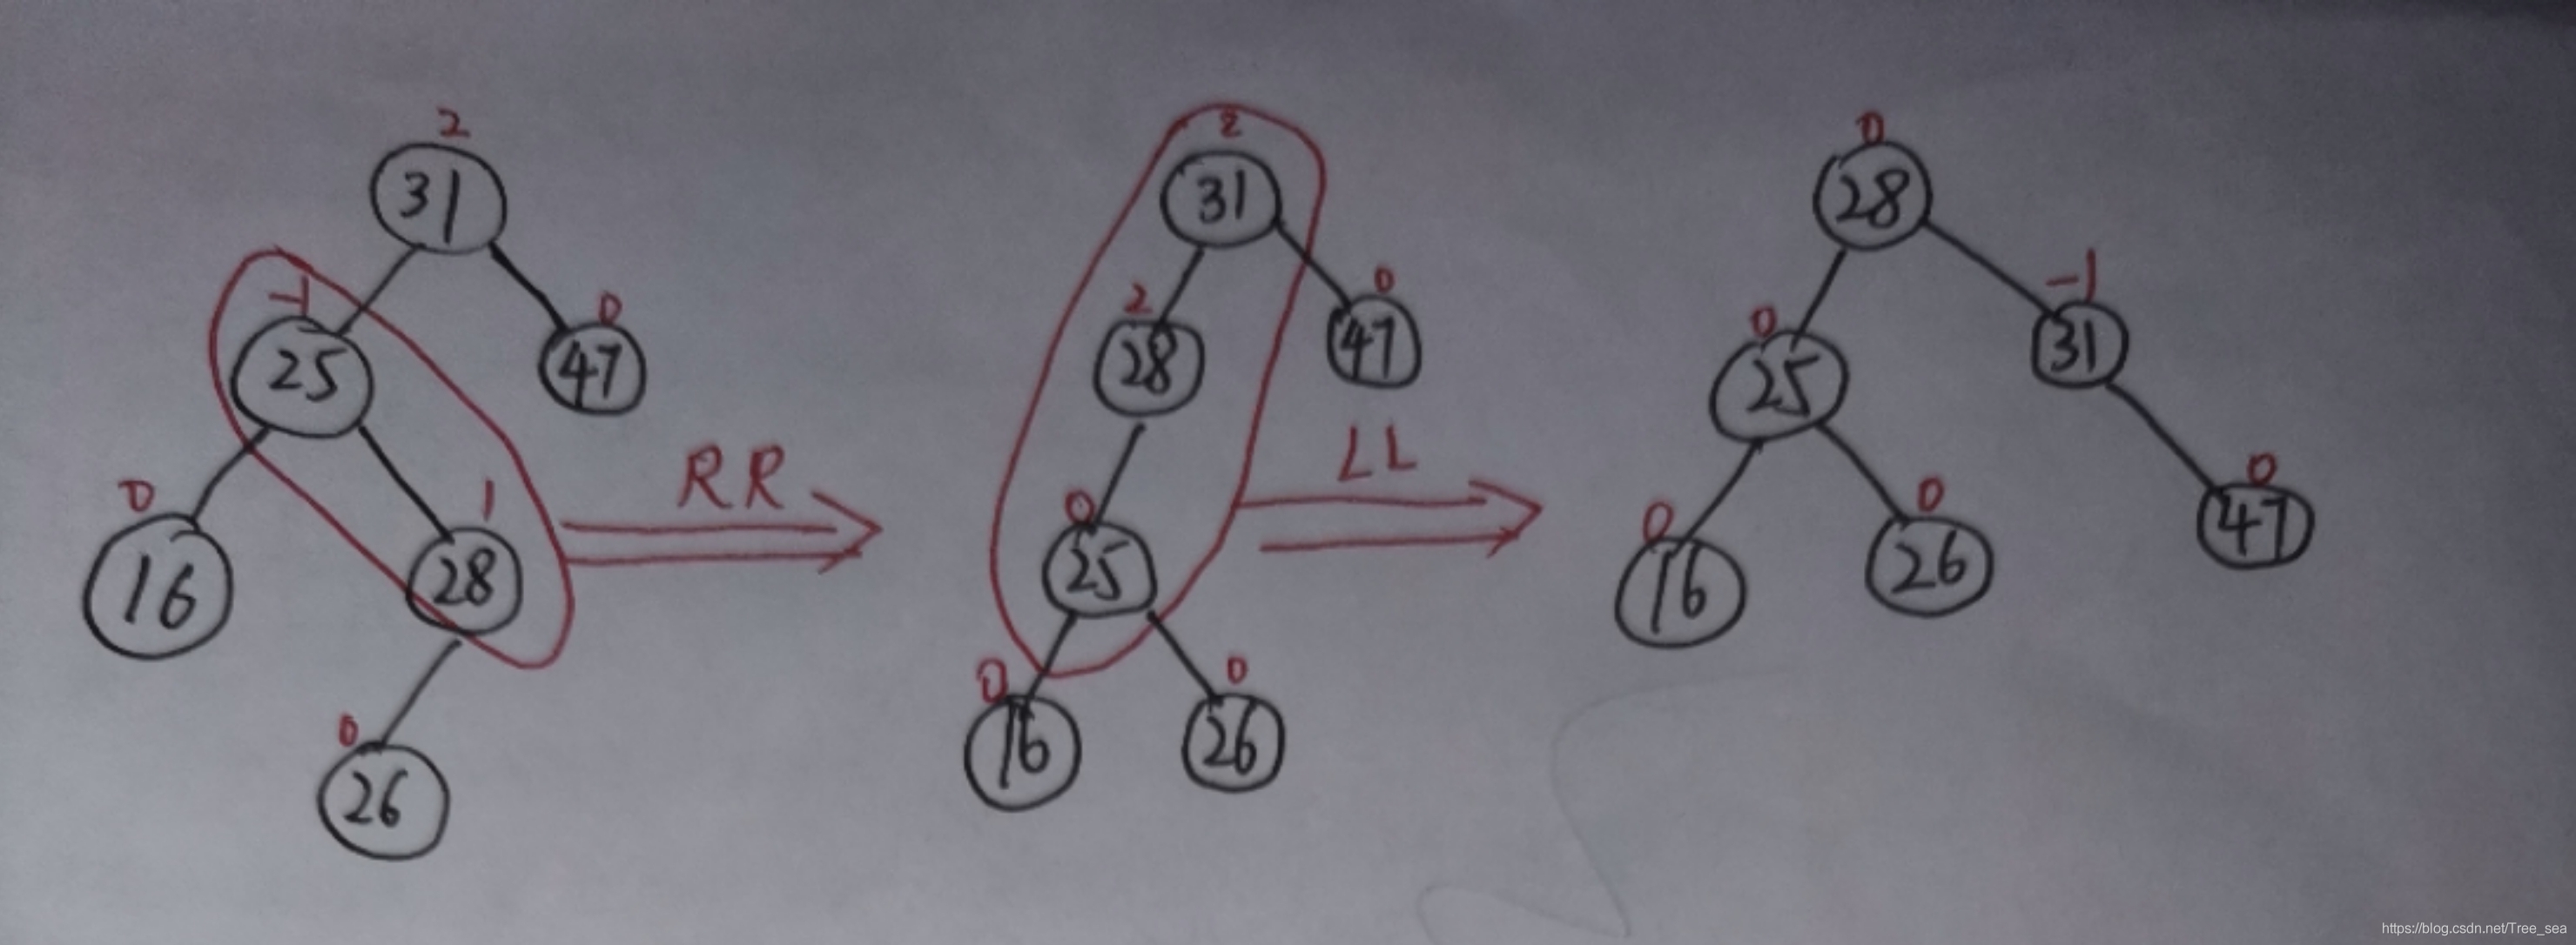 2
31
-1
25
0
47
0
16
1
28
0
26
RR
2
31
2
28
0
47
0
25
0
16
0
26
LL
0
28
0
25
-1
31
0
16
0
26
0
47
https://blog.csdn.net/Tree_sea